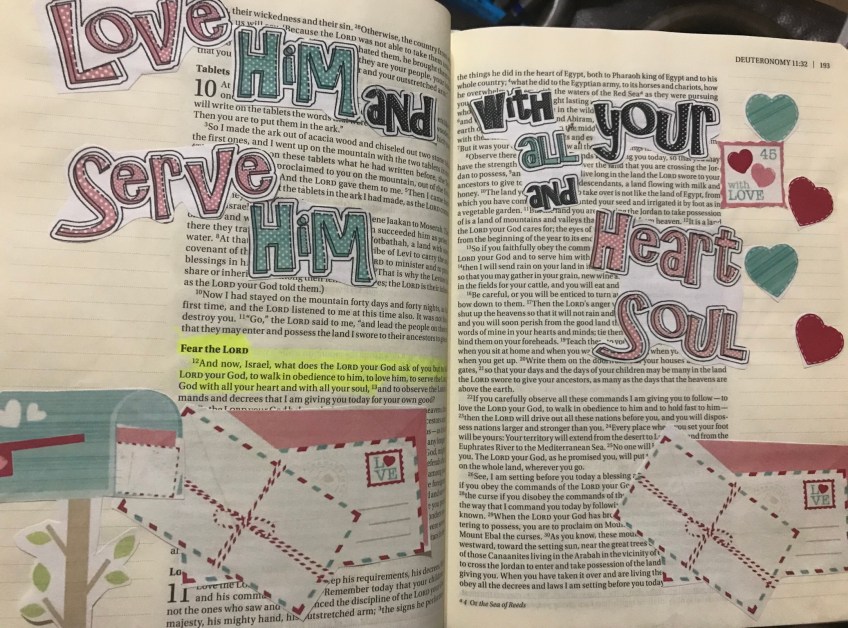 LOVE
HIM
and
SERVE
HIM
their wickedness and their sin. 28Otherwise, the country
'Because the LORD was not able to take them
hated them, he brought them
that you they are your people, your
and your outstretched
Tablets
10 At
will write on the tablets the words
Then you are to put them in the ark."
3So I made the ark out of acacia wood and chiseled out two stone
the first ones, and I went up on the mountain with the two tablets
on these tablets what he had written before,
proclaimed to you on the mountain, out of the
And the LORD gave them to me. 5Then I came
the tablets in the ark I had made, as the LORD
ene Jaakan to Moserah.
succeeded him as
there they tra otbathah, a land with
water. 8At that ibe of Levi to carry the
covenant of th RD to minister and to
blessings in h That is why the Lev
share or inheri es; the LORD is their
as the LORD your God told them.)
10Now I had stayed on the mountain forty days and forty nights, as
first time, and the LORD listened to me at this time also. It was not
destroy you. 11"Go," the LORD said to me, "and lead the people on their
that they may enter and possess the land I swore to their ancestors to
Fear the LORD
12And now, Israel, what does the LORD your God ask of you but to
LORD your God, to walk in obedience to him, to love him, to serve the LORD
God with all your heart and with all your soul, 13and to observe the LORD
mands and decrees that I am giving you today for your own good?
LOVE
11
and his comma
not the ones who saw and
majesty, his mighty hand, his outstretched arm; 3the signs he per
ep his requirements, his decrees
Remember today that your children
nced the discipline of the LORD your
DEUTERONOMY 11:32 | 193
WITH
ALL
your
and
Heart
SOUL
45
with
LOVE
the things he did in the heart of Egypt, both to Pharaoh king of Egypt and to his
whole country; 4what he did to the Egyptian army, to its horses and chariots, how
he overwhelmed the waters of the Red Sea a as they were pursuing
ght lasting
in the wild
and Abiram,
7But it was your
8Observe there ds I am giving you today, so that you may
have the strength the land that you are crossing the Jor-
dan to possess, live long in the land the LORD swore to your
ancestors to give descendants, a land flowing with milk and
honey. 10The land y take over is not like the land of Egypt, from
which you have com nted your seed and irrigated it by foot as in
a vegetable garden. and you are the Jordan to take possession
of is a land of mountains and valleys tha heaven. 12It is a land
the LORD your God cares for; the eyes of
from the beginning of the year to its end
13So if you faithfully obey the comm
LORD your God and to serve him with
14then I will send rain on your land in i
so that you may gather in your grain, new wine
in the fields for your cattle, and you will eat and
16Be careful, or you will be enticed to turn a
bow down to them. 17Then the LORD's anger
shut up the heavens so that it will not rain and
and you will soon perish from the good land th
words of mine in your hearts and minds; tie them
bind them on your foreheads. 19Teach them
when you sit at home and when you wa when yo
when you get up. 20Write them on the doo your houses
gates, 21so that your days and the days of your children may be many in the land
the LORD swore to give your ancestors, as many as the days that the heavens are
above the earth.
22If you carefully observe all these commands I am giving you to follow—to
love the LORD your God, to walk in obedience to him and to hold fast to him—
23then the LORD will drive out all these nations before you, and you will dispos-
sess nations larger and stronger than you. 24Every place whe you set your foot
will be yours: Your territory will extend from the desert to L and from the
Euphrates River to the Mediterranean Sea. 25No one will
you. The LORD your God, as he promised you, will put
on the whole land, wherever you go.
26See, I am setting before you today a blessing
if you obey the commands of the LORD your Go
28the curse if you disobey the commands of the
the way that I command you today by followi
known. 29When the LORD your God has br
tering to possess, you are to proclaim on Mou
Mount Ebal the curses. 30As you know, these mou
westward, toward the setting sun, near the great trees
of those Canaanites living in the Arabah in the vicinity of
to cross the Jordan to enter and take possession of the land
giving you. When you have taken it over and are living the
obey all the decrees and laws I am setting before you today
LOVE
a4 Or the Sea of Reeds